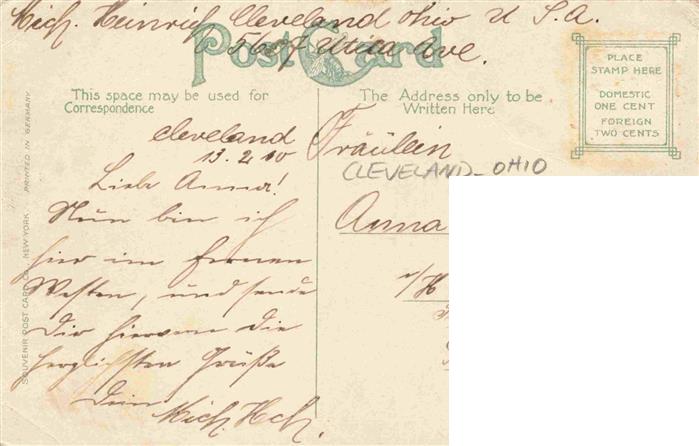 Mich. Heinrich Cleveland Ohio U. S. A.
5607 Utica Ave.
Post Card
This space may be used for
Correspondence
The Address only to be
Written Here
PLACE
STAMP HERE
DOMESTIC
ONE CENT
FOREIGN
TWO CENTS
SOUVENIR POST CARD CO. NEW YORK. PRINTED IN GERMANY
Cleveland
13.2.10
Liebe Anna!
Nun bin ich
hier im fernen
Westen, und sende
Dir hiervon die
herzlichsten Grüße
Dein Mich. Hch.
Fräulein
CLEVELAND - OHIO
Anna